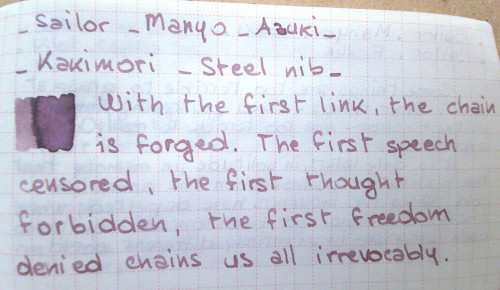 - Sailor - Manyo - Azuki -
- Kakimori - Steel nib -
With the first link, the chain
is forged. The first speech
censored, the first thought
forbidden, the first freedom
denied chains us all irrevocably.